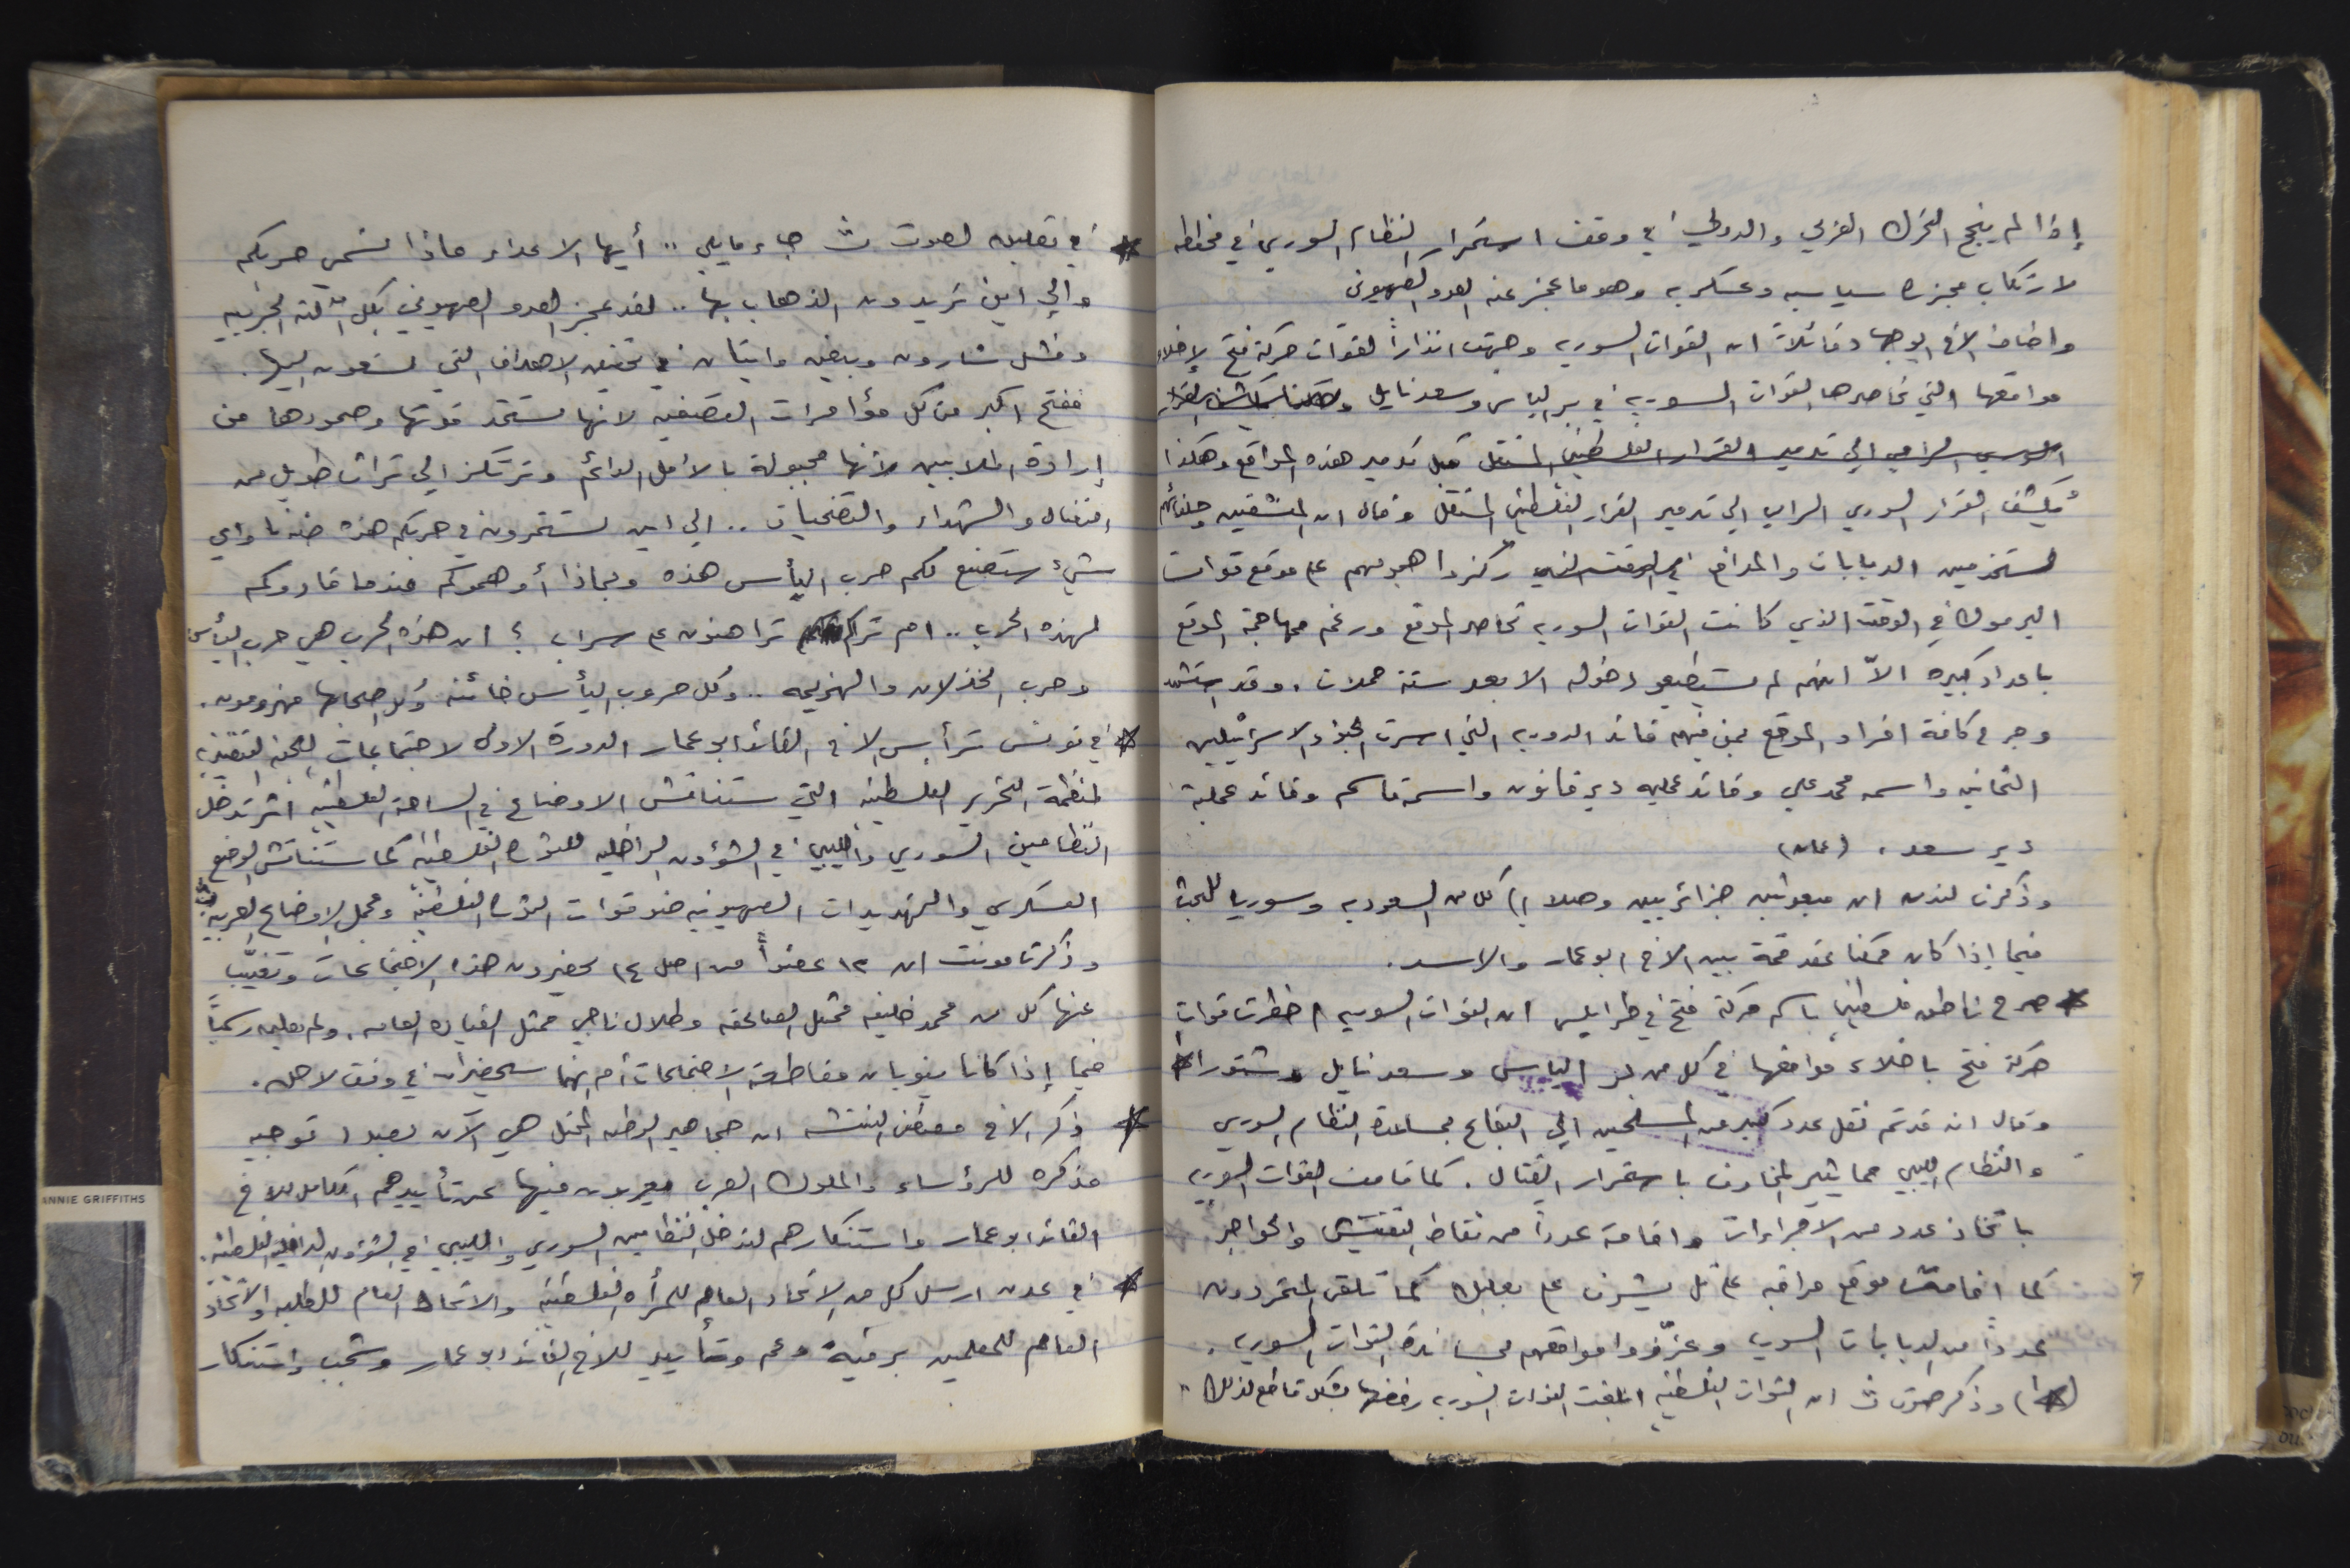 إذا لم ينجح التحرك العربي والدولي في وقف استمرار النظام السوري في مخططه
لارتكاب مجزرة سياسيه وعسكريه وهو ما عجز عنه العدو الصهيوني
واضاف الاخ ابو جهاد قائلاً ان القوات السوريه وجهت انذاراً لقوات حركة فتح لإخلاء
مواقعها التي تحاصرها القوات السوريه في بر الياس وسعدنايل
السوري الرامي الي تدمير القرار الفلسطيني المستقل قبل تدمير هذه المواقع وهكذا
يكشف القرار السوري الرامي الي تدمير القرار الفلسطيني المستقل وقال ان المنشقين وحلفائهم
مستخدمين الدبابات والمدافع ركزوا هجومهم على موقع قوات
اليرموك في الوقت الذي كانت القوات السوريه تحاصر الموقع ورغم مهاجمة الموقع
باعداد كبيره الاّ انهم لم يستطيعو دخوله الا بعد ستة حملات. وقد استشهد
وجرح كافة افراد الموقع بمن فيهم قائد الدوريه التي اسرت الجنود الاسرائيليين
الثمانيه واسمه محمد علي وقائد عمليه دير قانون واسمه قاسم وقائد عملية
دير سعد. (عمان)
وذكرت لندن ان مبعوثين جزائريين وصلا إلى كل من السعوديه وسوريا للبحث
فيما إذا كان ممكنا عقد قمة بين الاخ ابو عمار والاسد.
* صرح ناطق فلسطيني باسم حركة فتح في طرابلس ان القوات السوريه اخطرت قوات
حركة فتح باخلاء مواقعها في كل من بر الياس وسعدنايل وشتورا
وقال انه قد تم نقل عدد كبير من المسلحين الي البقاع بمساعدة النظام السوري
والنظام الليبي مما يثير المخاوف باستمرار القتال. كما قامت القوات السوريه
باتخاذ عدد من الاجراءات واقامة عدداً من نقاط التفتيش والحواجز
كما اقامت موقع مراقبه على تل يشرف على بعلبك كما تلقى المتمردون
عدداً من الدبابات السوريه وعززوا مواقعهم بمساندة القوات السوريه.
(*) وذكر صوت ث ان القوات الفلسطينيه ابلغت القوات السوريه رفضها بشكل قاطع لذلك"
* في تعليق لصوت ث جاء مايلي .. أيها الاعداء ماذا نسمي حربكم
والي اين تريدون الذهاب بها .. لقد عجز العدو الصهيوني بكل آلته الحربيه
وفشل شارون وبيغن وايتان في تحقيق الاهداف التي تسعون اليها.
ففتح اكبر من كل مؤامرات التصفيه لانها تستمد قوتها وصمودها من
إرادة الملايين لانها مجبولة بالأمل الدائم وترتكز الي تراث طويل من
القتال والشهداء والتضحيات .. الي اين تستمرون في حربكم هذه ضدنا واي
شيء ستصنع لكم حرب اليأس هذه وبماذا أوهموكم عندما قادوكم
لهذه الحرب .. ام تراكم تراهنون على سراب ؟ ان هذه الحرب هي حرب اليأس
وحرب الخذلان والهزيمه .. وكل حروب اليأس خائنة وكل اصحابها مهزومون.
* في تونس ترأس الاخ القائد ابو عمار الدورة الاولى لاجتماعات اللجنه التنفيذيه
لمنظمة التحرير الفلسطينيه التي ستناقش الاوضاع في الساحة الفلسطينيه اثر تدخل
النظامين السوري والليبي في الشؤون الداخليه للثورة الفلسطينيه كما ستناقش الوضع
العسكري والتهديدات الصهيونيه ضد قوات الثورة الفلسطينيه ومجمل الاوضاع العربيه
وذكرت مونت ان ١٢ عضواً من اصل ١٤ يحضرون هذه الاجتماعات وتغيّب
عنها كل من محمد خليفه ممثل الصاعقه وطلال ناجي ممثل القياده العامه. ولم يعلن رسمياً
فيما إذا كانا ينويان مقاطعة الاجتماعات أم انهما سيحضران في وقت لاحق.
* ذكر الاخ ان جماهير الوطن المحتل هي الآن بصدد توجيه
مذكره للرؤساء والملوك العرب يعربون فيها عن تأييدهم الكامل للاخ
القائد ابو عمار واستنكارهم لتدخل النظامين السوري والليبي في الشؤون الداخليه الفلسطينيه.
* في عدن ارسل كل من الاتحاد العام للمرأه الفلسطينيه والاتحاد العام للطلبه والاتحاد
العام للمعلمين برقية دعم وتأييد للاخ القائد ابو عمار وشجب واستنكار
ANNIE GRIFFITHS